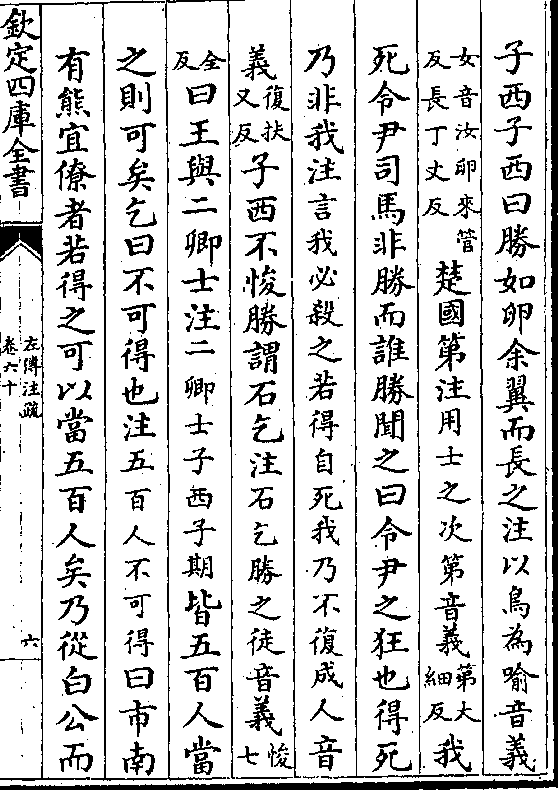 子西子西曰勝如卵余翼而長之注以鳥為喻音義
女音汝卵來管
反長丁丈反
楚國第注用士之次第音義
第大
細反
我
死令尹司馬非勝而誰勝聞之曰令尹之狂也得死
乃非我注言我必殺之若得自死我乃不復成人音
義
復扶
又反
子西不悛勝謂石乞注石乞勝之徒音義
悛
七
全
反
曰王與二卿士注二卿士子西子期皆五百人當
之則可矣乞曰不可得也注五百人不可得曰市南
有熊宜僚者若得之可以當五百人矣乃從白公而
欽定四庫全書
左傳注疏
卷六十
六